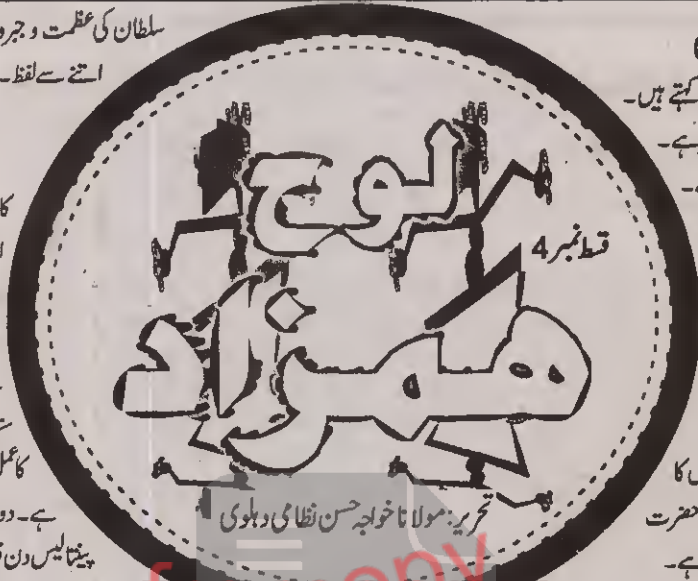 سلطان کی عظمت و جبرو
اتنے سے لفظ۔
کہتے ہیں۔
ہے۔
لوح
قسط نمبر 4
ہمزاد
تحریر: مولانا خواجہ حسن نظامی دہلوی
کا عمل
ہے۔ دو
پینتالیس دن
کا
حضرت
ہے۔
copy